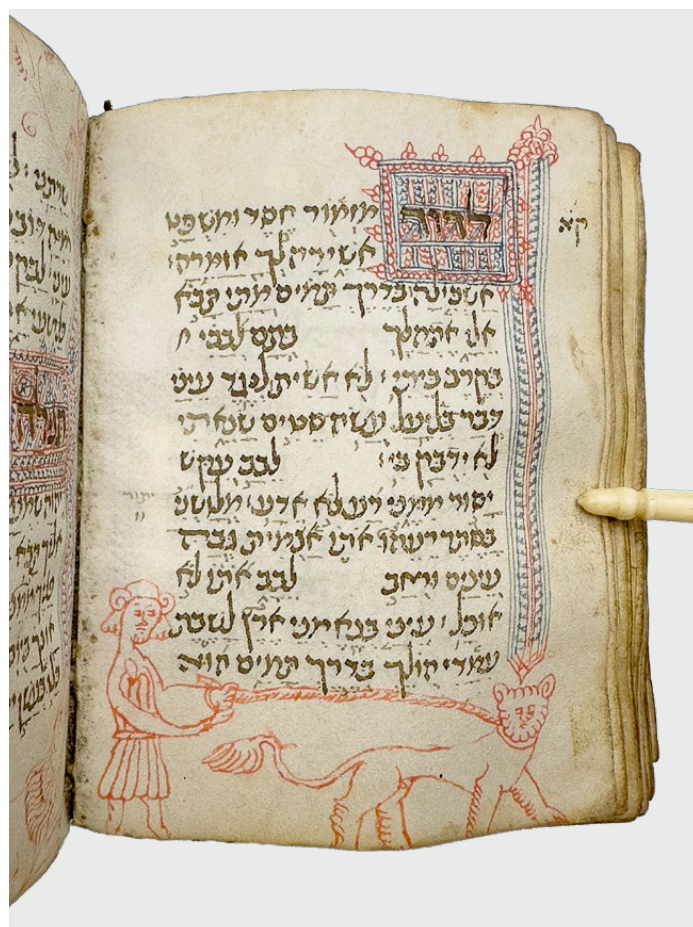 קא
לדוד
מזמור חסד ומשפט
אשירה לך אזמרה:
אשכילה בדרך תמים מתי תבא
אלי אתהלך בתם לבבי
בקרב ביתי: לא אשית לנגד עיני
דבר בליעל עשה סטים שנאתי
לא ידבק בי: לבב עקש
יסור ממני רע לא אדע: מלשני
בסתר רעהו אותו אצמית גבה
עינים ורחב לבב אותו לא
אוכל: עיני בנאמני ארץ לשבת
עמדי הולך בדרך תמים הוא
תפלה